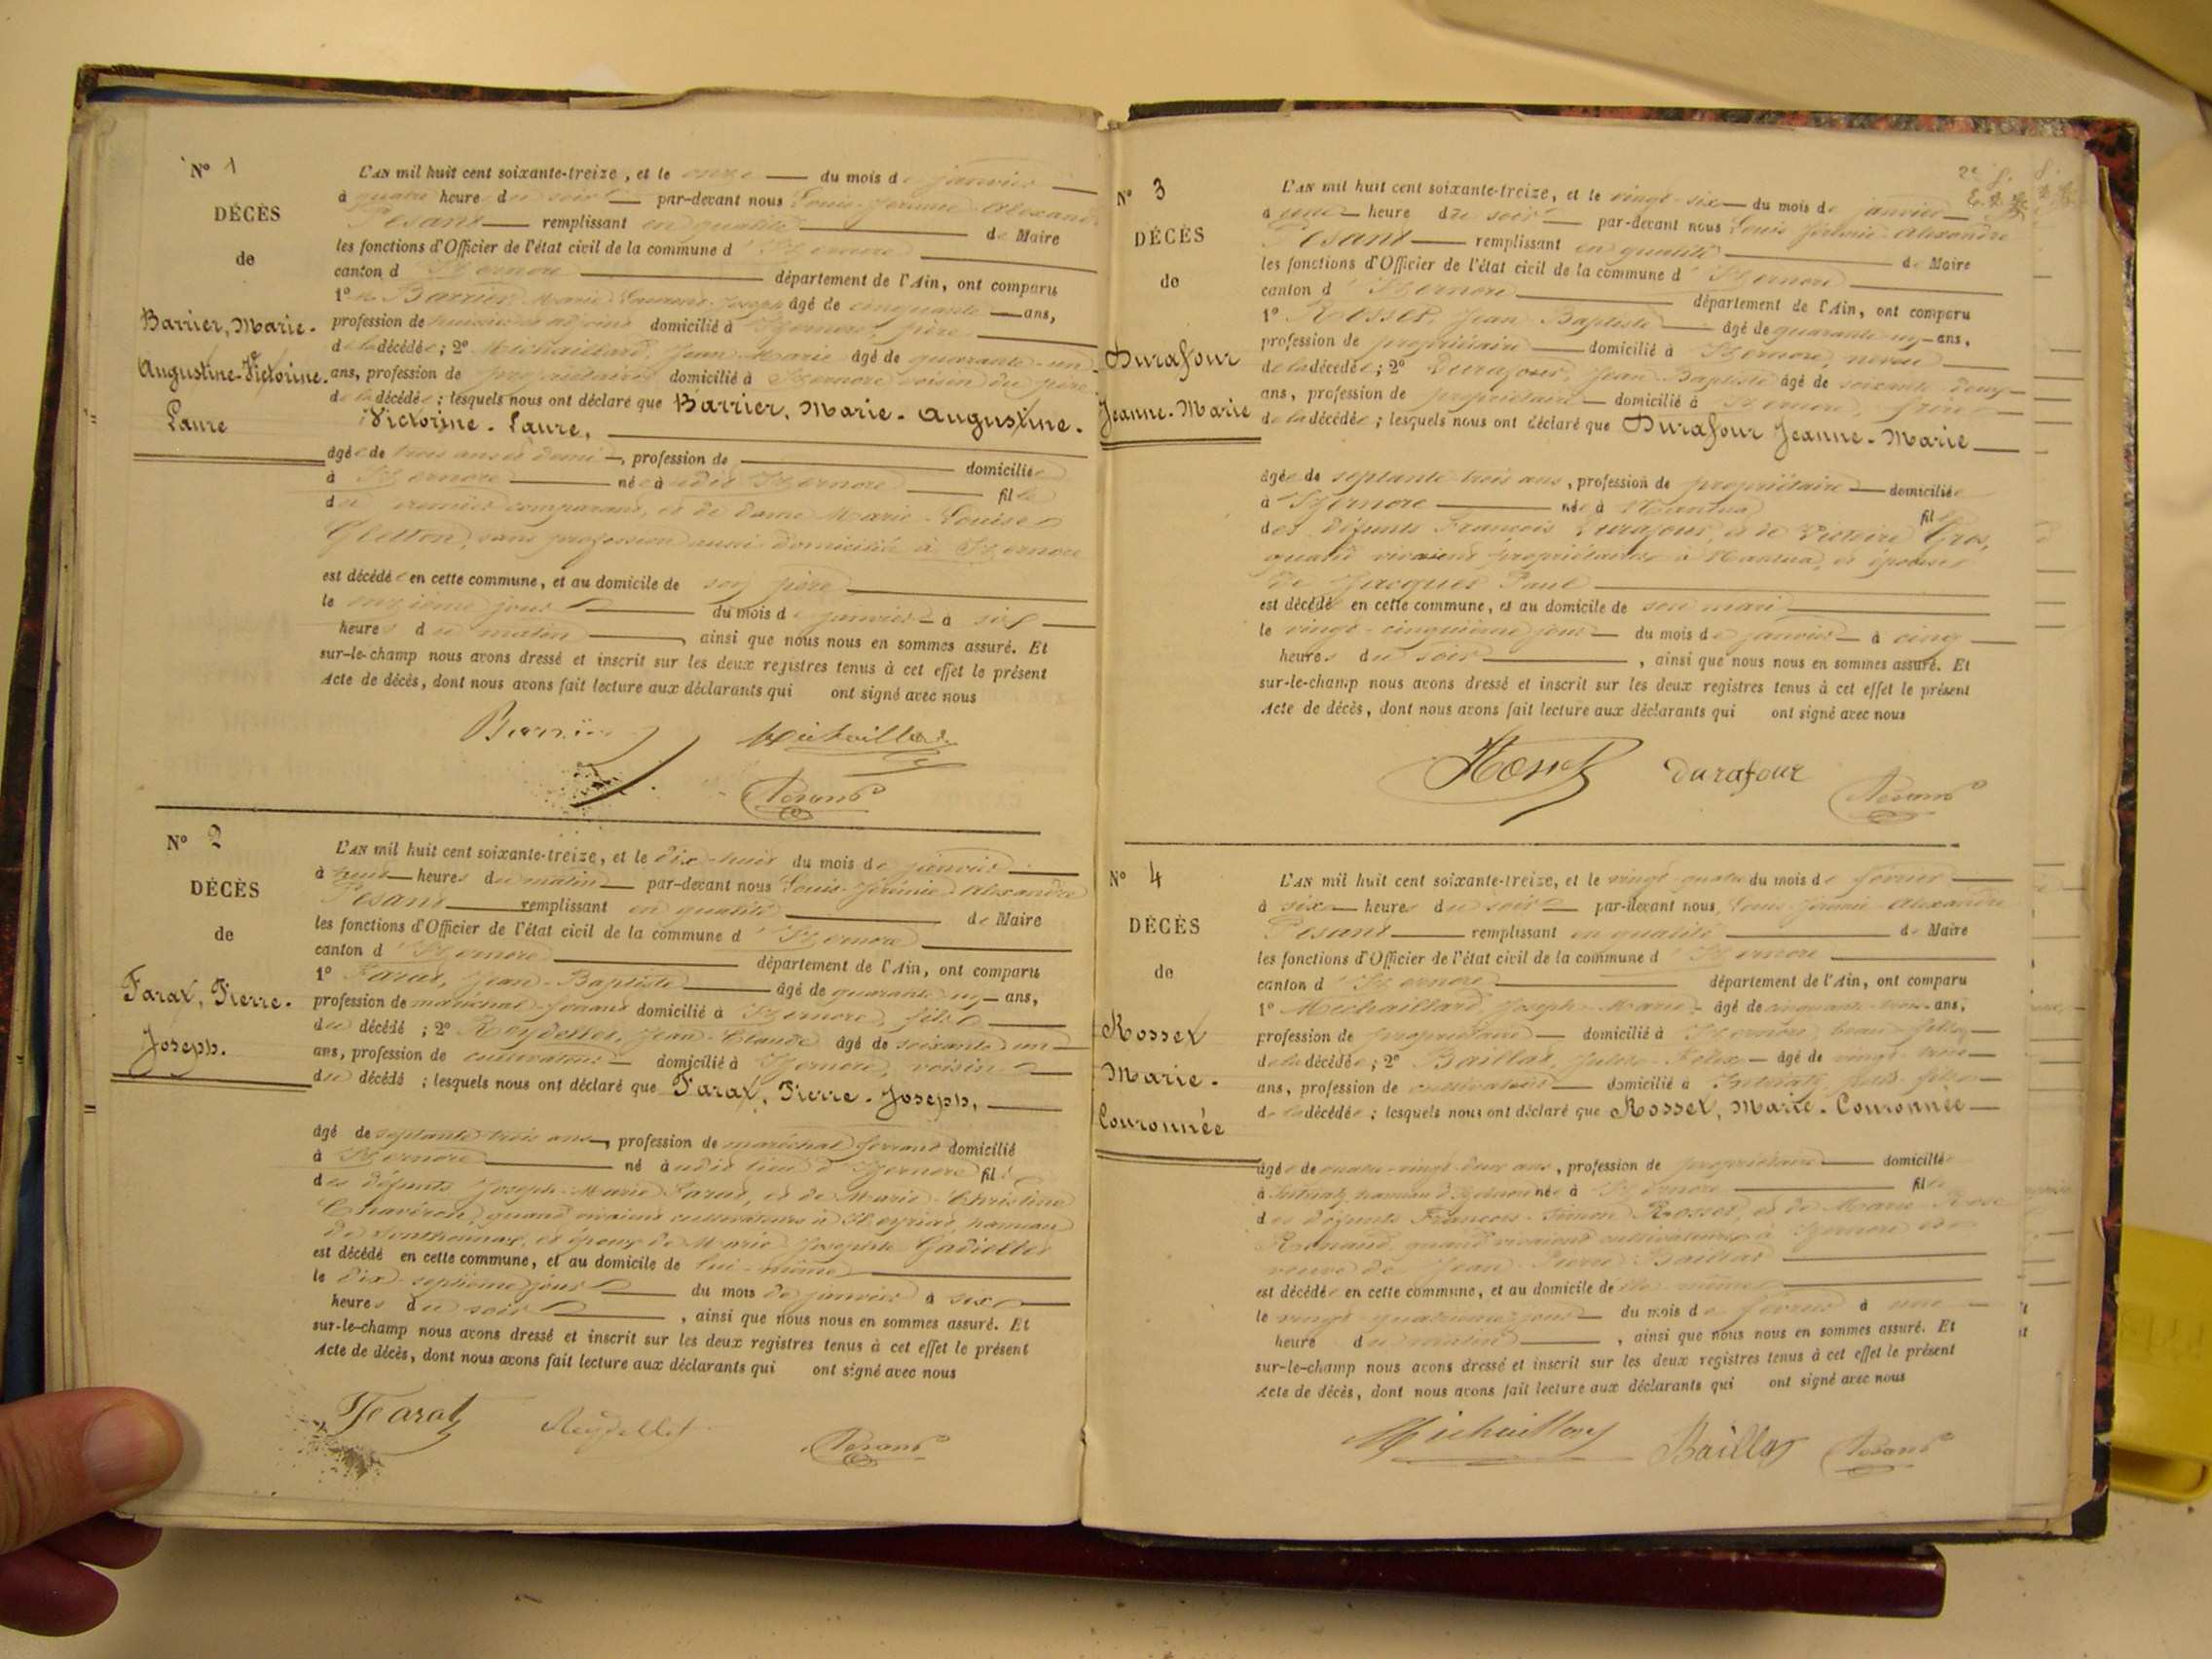 N° 1
DÉCÈS
de
Barrier, Marie-
Augustine-Victorine-
Laure
L'AN mil huit cent soixante-treize, et le onze du mois de janvier
à quatre heure du soir par-devant nous Louis-Jérémie-Alexandre
Pesant remplissant en qualité de Maire
les fonctions d'Officier de l'état civil de la commune d'Izernore
canton d'Izernore département de l'Ain, ont comparu
1° Barrier Marie Laurent Joseph âgé de cinquante ans,
profession de domicilié à Izernore, père
de la décédée ; 2° Michaillard, Jean-Marie âgé de quarante-un
ans, profession de propriétaire domicilié à Izernore voisin du père
de la décédée ; lesquels nous ont déclaré que Barrier, Marie-Augustine-
Victorine-Laure,
âgée de trois ans et demi, profession de domiciliée
à Izernore née audit Izernore fille
du premier comparant, et de dame Marie-Louise
Gletton, sans profession aussi domiciliée à Izernore
est décédée en cette commune, et au domicile de son père
le onzième jour du mois de janvier à six
heures du matin, ainsi que nous nous en sommes assuré. Et
sur-le-champ nous avons dressé et inscrit sur les deux registres tenus à cet effet le présent
Acte de décès, dont nous avons fait lecture aux déclarants qui ont signé avec nous
Barrier Michaillard
Pesant
N° 2
DÉCÈS
de
Farat, Pierre-
Joseph.
L'AN mil huit cent soixante-treize, et le dix-huit du mois de janvier
à heures du matin par-devant nous Louis-Jérémie-Alexandre
Pesant remplissant en qualité de Maire
les fonctions d'Officier de l'état civil de la commune d'Izernore
canton d'Izernore département de l'Ain, ont comparu
1° Farat, Jean-Baptiste âgé de quarante un ans,
profession de maréchal ferrant domicilié à Izernore, fils
du décédé ; 2° Reydellet, Jean-Claude âgé de soixante un
ans, profession de cultivateur domicilié à Izernore, voisin
du décédé ; lesquels nous ont déclaré que Farat, Pierre-Joseph,
âgé de septante trois ans, profession de maréchal ferrant domicilié
à Izernore né audit lieu d'Izernore fils
des défunts Joseph-Marie Farat, et de Marie-Christine
Chavéron, quand vivaient cultivateurs à Heyriat, hameau
de Sonthonnax, et époux de Marie Josephte Gadiollet
est décédé en cette commune, et au domicile de lui-même
le dix-septième jour du mois de janvier à six
heures du soir, ainsi que nous nous en sommes assuré. Et
sur-le-champ nous avons dressé et inscrit sur les deux registres tenus à cet effet le présent
Acte de décès, dont nous avons fait lecture aux déclarants qui ont signé avec nous
Farat Reydellet Pesant
N° 3
DÉCÈS
de
Durafour
Jeanne-Marie
L'AN mil huit cent soixante-treize, et le vingt-six du mois de janvier
à une heure du soir par-devant nous Louis Jérémie-Alexandre
Pesant remplissant en qualité de Maire
les fonctions d'Officier de l'état civil de la commune d'Izernore
canton d'Izernore département de l'Ain, ont comparu
1° Rosset, Jean-Baptiste âgé de quarante un ans,
profession de propriétaire domicilié à Izernore, neveu
de la décédée ; 2° Durafour, Jean-Baptiste âgé de soixante deux
ans, profession de propriétaire domicilié à Izernore, frère
de la décédée ; lesquels nous ont déclaré que Durafour Jeanne-Marie
âgée de septante trois ans, profession de propriétaire domiciliée
à Izernore née à Nantua fille
des défunts François Durafour, et de Victoire Gros,
quand vivaient propriétaires à Nantua, et épouse
de Jacques Paul
est décédée en cette commune, et au domicile de son mari
le vingt-cinquième jour du mois de janvier à cinq
heures du soir, ainsi que nous nous en sommes assuré. Et
sur-le-champ nous avons dressé et inscrit sur les deux registres tenus à cet effet le présent
Acte de décès, dont nous avons fait lecture aux déclarants qui ont signé avec nous
Rosset durafour Pesant
N° 4
DÉCÈS
de
Rosset
Marie-
Couronnée
L'AN mil huit cent soixante-treize, et le vingt-quatre du mois de février
à six heures du soir par-devant nous Louis-Jérémie-Alexandre
Pesant remplissant en qualité de Maire
les fonctions d'Officier de l'état civil de la commune d'Izernore
canton d'Izernore département de l'Ain, ont comparu
1° Michaillard, Joseph-Marie âgé de cinquante-trois ans,
profession de propriétaire domicilié à Izernore, beau-fils
de la décédée ; 2° Baillat, Jules-Félix âgé de vingt-trois
ans, profession de cultivateur domicilié à Intériat, petit-fils
de la décédée ; lesquels nous ont déclaré que Rosset, Marie-Couronnée
âgée de quatre-vingt-deux ans, profession de propriétaire domiciliée
à Intériat, hameau d'Izernore née à Izernore fille
des défunts François-Simon Rosset, et de Marie Rose
Renaud, quand vivaient cultivateurs à Izernore et
veuve de Jean-Pierre Baillat
est décédée en cette commune, et au domicile de elle-même
le vingt-quatrième jour du mois de février à une
heure du matin, ainsi que nous nous en sommes assuré. Et
sur-le-champ nous avons dressé et inscrit sur les deux registres tenus à cet effet le présent
Acte de décès, dont nous avons fait lecture aux déclarants qui ont signé avec nous
Michaillard Baillat Pesant